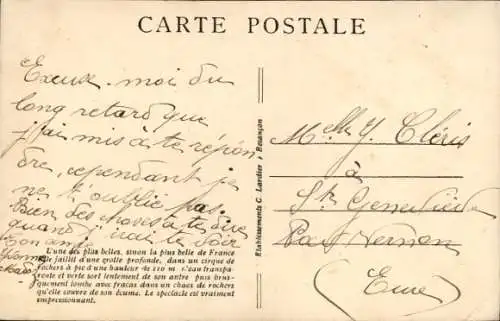 CARTE POSTALE
Excuse-moi du
long retard que
j'ai mis à te répon
dre, cependant je
ne t'oublie pas.
Bien des choses à te dire
quand j'irai te voir
Ton amie
L'une des plus belles, sinon la plus belle de France
elle jaillit d'une grotte profonde, dans un cirque de
rochers à pic d'une hauteur de 110 m. L'eau transpa-
rente et verte sort lentement de son antre puis brus-
quement tombe avec fracas dans un chaos de rochers
qu'elle couvre de son écume. Le spectacle est vraiment
impressionnant.
Etablissements C. Lardier, Besançon
Melle Y. Cléris
à
Ste Geneviève
Vernon
(Eure)